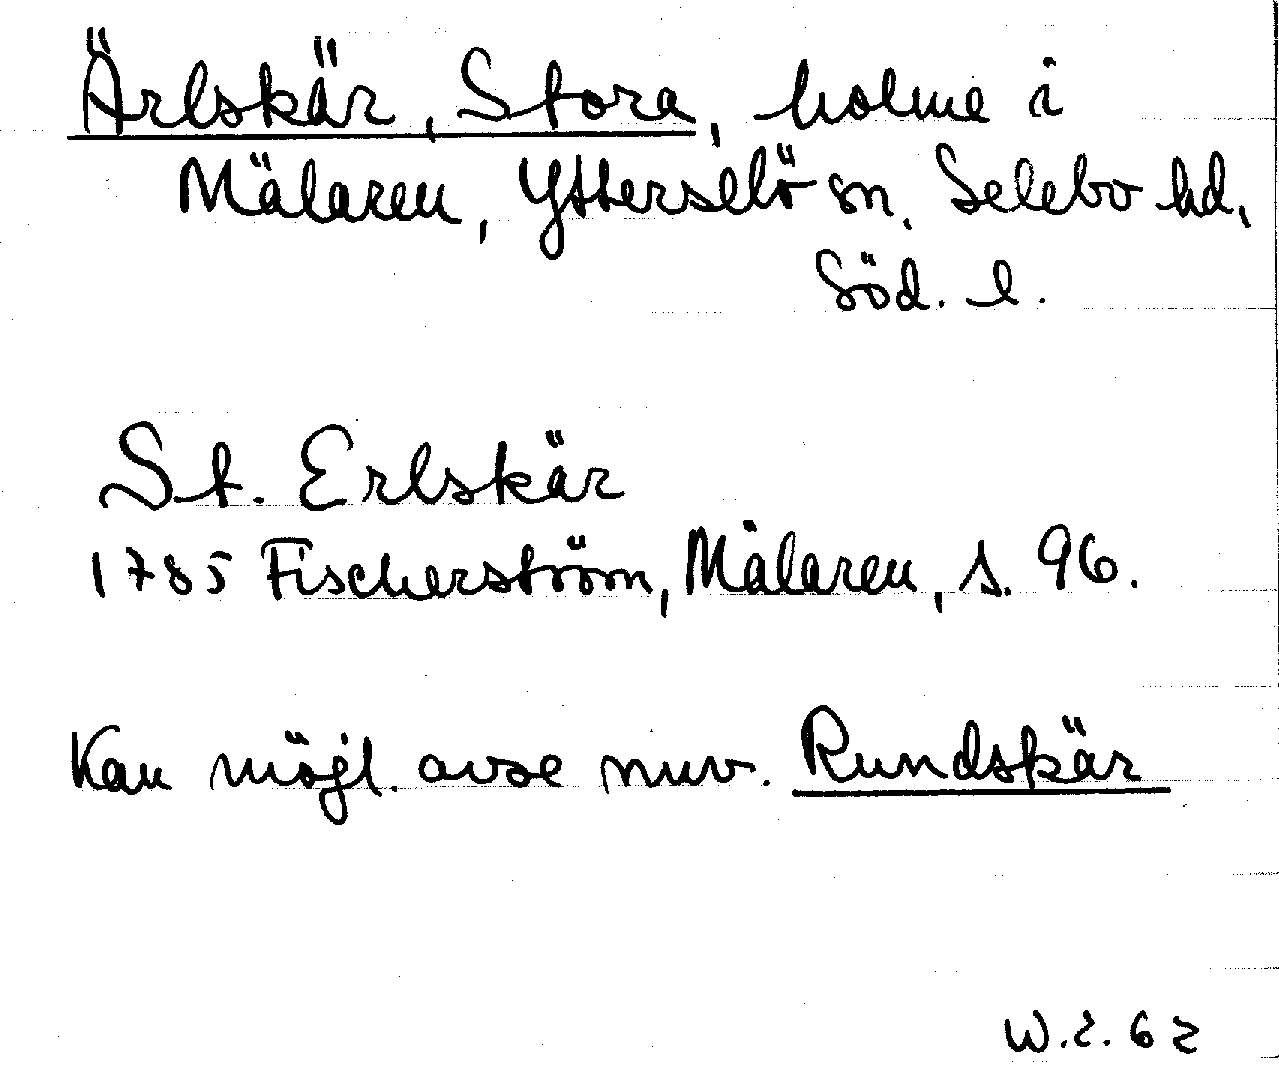 Ärlskär, Stora, holme i
Mälaren, Ytterselö sn, Selebo hd,
Söd. l.
St. Erlskär
1785 Fischerström, Mälaren, s. 96.
Kan möjl. avse nuv. Rundskär
W.Z. 62